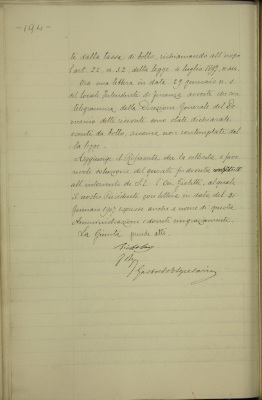 -194-
te dalla tassa di bollo, richiamando all'uopo
l'art. 22, n. 32, della legge 4 luglio 1897, n.
Ora una lettera in data 29 gennaio u. s.
del locale Intendente di finanza avverte che con
telegramma della Direzione Generale del De
manio dette ricevute sono state dichiarate
esenti da bollo, ancorché non contemplate dal
la legge.
Aggiunge il Referente che la sollecita e favo
revole soluzione del quesito fu dovuta
all'intervento di S. E. l'On. Giolitti, al quale
il nostro Presidente con lettera in data del 31
gennaio 1907 espresse anche a nome di questa
Amministrazione i dovuti ringraziamenti.
La Giunta prende atto.